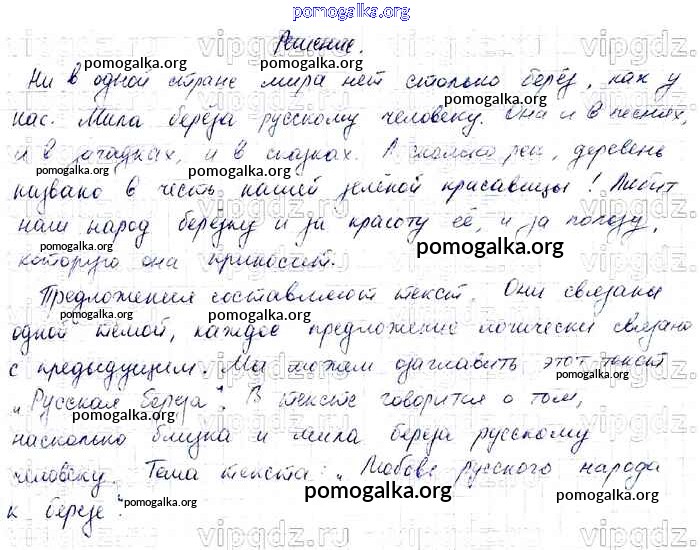 pomogalka.org
Решение.
pomogalka.org pomogalka.org
Ни в одной стране мира нет столько берёз, как у
pomogalka.org
нас. Мила береза русскому человеку. Она и в песнях,
и в загадках, и в сказках. А сколько рек, деревень
pomogalka.org pomogalka.org
названо в честь нашей зелёной красавицы! Любит
наш народ берёзку и за красоту её, и за пользу,
pomogalka.org pomogalka.org
которую она приносит.
Предложения составляют текст. Они связаны
pomogalka.org
одной темой, каждое предложение логически связано
с предыдущим. Мы можем озаглавить этот текст
pomogalka.org
"Русская береза". В тексте говорится о том,
pomogalka.org
насколько близка и мила береза русскому
человеку. Тема текста: "Любовь русского народа
pomogalka.org pomogalka.org
к березе".
pomogalka.org
vipgdz.ru vipgdz.ru vipgdz.ru